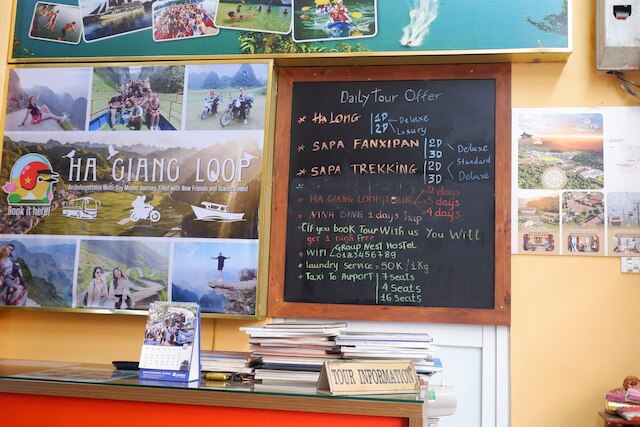 Daily Tour Offer
* HA LONG 1D Deluxe
2D Luxury
* SAPA FANXIPAN 2D
3D Deluxe
* SAPA TREKKING 2D Standard
3D Deluxe
* HA GIANG LOOP TOUR 2 days
3 days
4 days
* NINH BINH 1 days Trip
(If you book Tour With us You Will
get 1 nigh Free
* WIFI GROUP NEST HOSTEL
0123456789
* laundry service = 50K / 1Kg
* Taxi To Airport 7 seats
4 Seats
16 Seats
HA GIANG LOOP
An Unforgettable Multi-Day Moped Journey, Filled with New Friends and Scenic Beauty!
Book it here!
TOUR INFORMATION